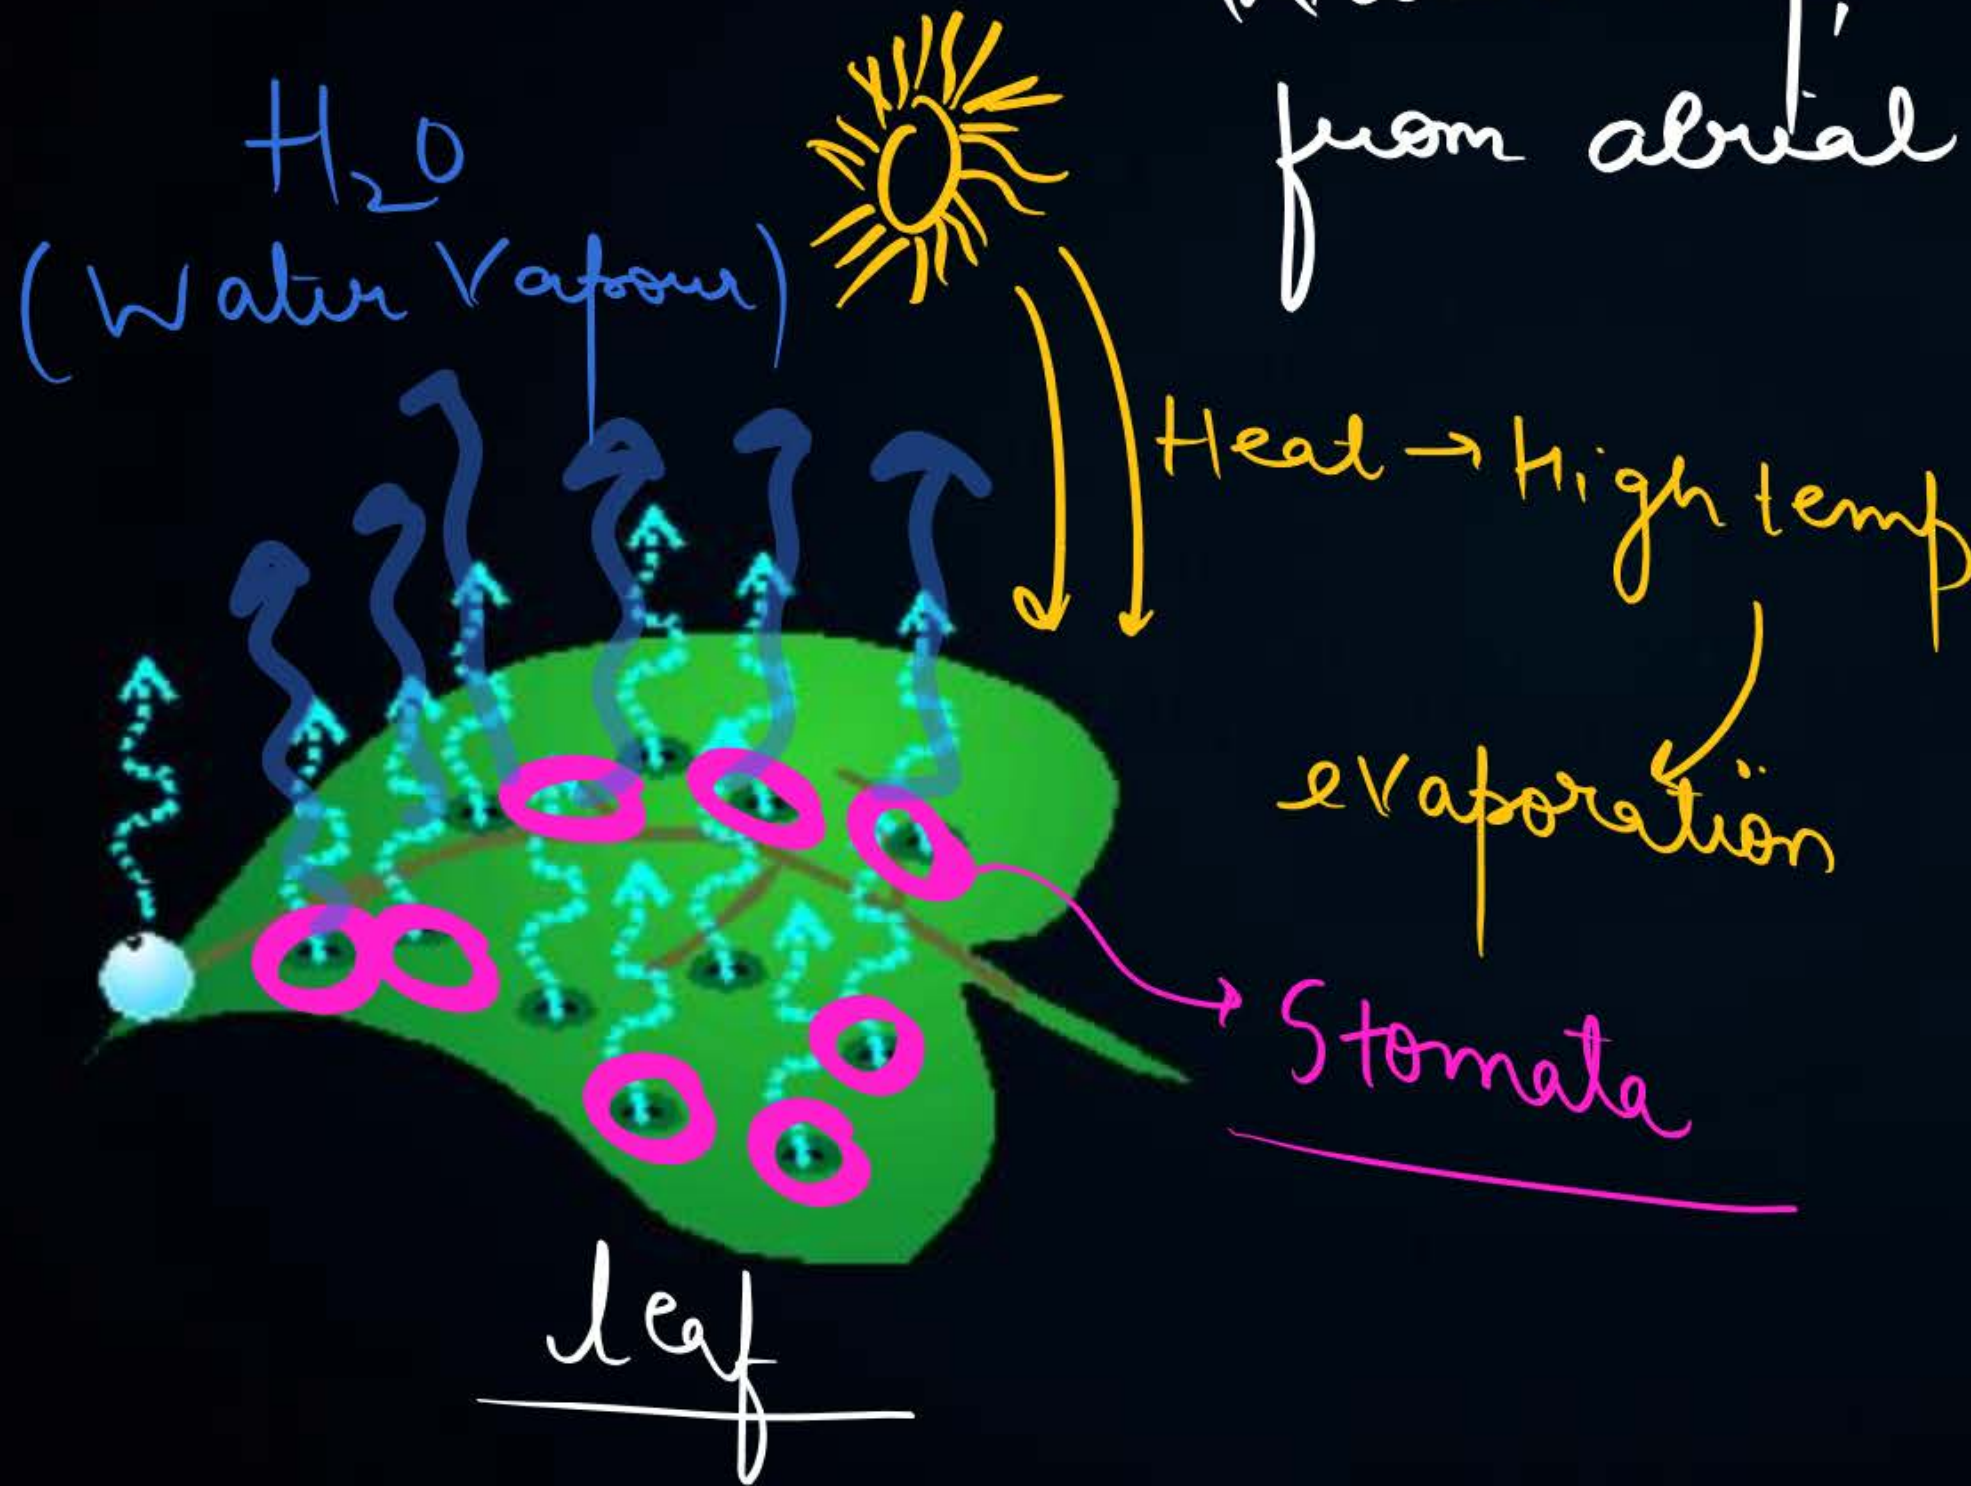 from abrial
H₂O
(Water Vapour)
Heat → High temp
evaporation
Stomata
leaf